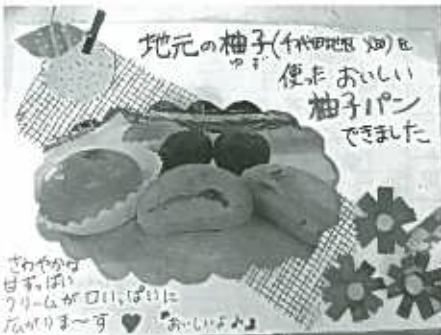 地元の柚子(千代田地区 畑)を
ゆず
使った おいしい
柚子パン
できました
さわやかな
甘ずっぱい
クリームが口いっぱいに
広がりま〜す♥ おいしいよ♪♪